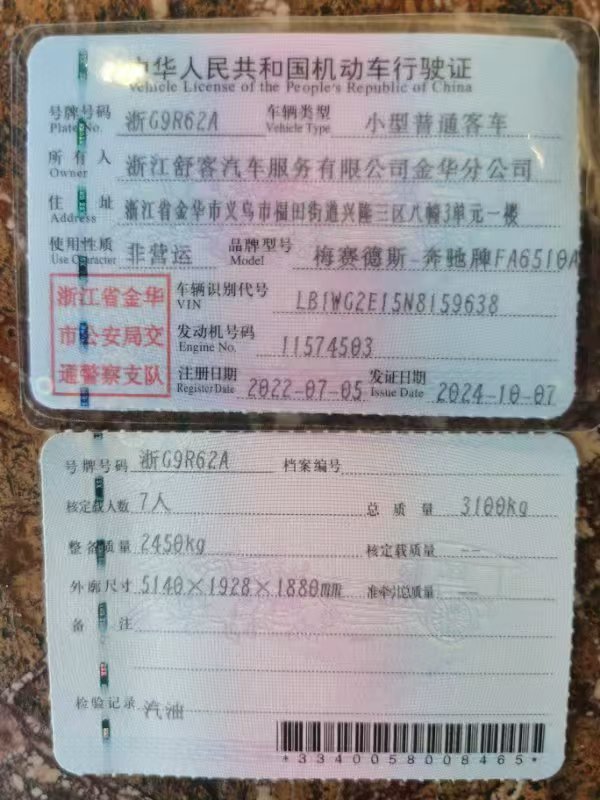 中华人民共和国机动车行驶证
Vehicle License of the People's Republic of China
号牌号码 浙G9R62A 车辆类型 小型普通客车
Plate No. Vehicle Type
所有人 浙江舒客汽车服务有限公司金华分公司
Owner
住址 浙江省金华市义乌市福田街道兴隆三区八幢3单元一楼
Address
使用性质 非营运 品牌型号 梅赛德斯-奔驰牌FA6510A
Use Character Model
浙江省金华
市公安局交
通警察支队
车辆识别代号 LB1WG2E15N8159638
VIN
发动机号码 11574503
Engine No.
注册日期 2022-07-05 发证日期 2024-10-07
Register Date Issue Date
号牌号码 浙G9R62A 档案编号
核定载人数 7人 总质量 3100kg
整备质量 2450kg 核定载质量 --
外廓尺寸 5140×1928×1880mm 准牵引总质量 --
备注
检验记录 汽油
*3340058008465*